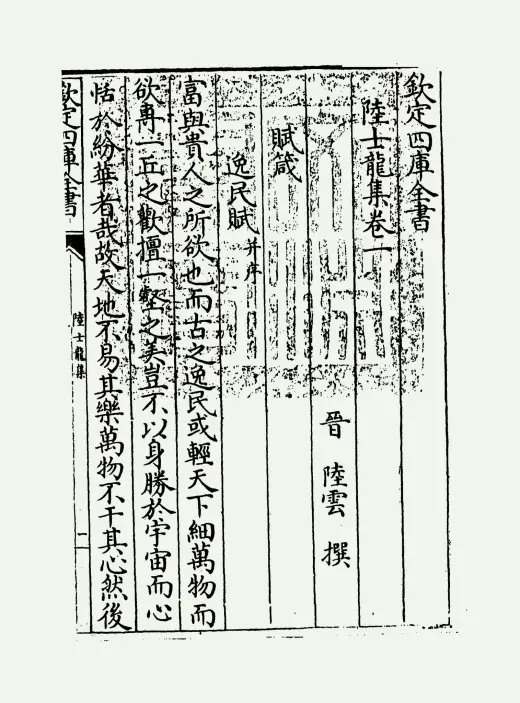 欽定四庫全書
陸士龍集卷一
晉 陸雲 撰
賦箴
逸民賦并序
富與貴人之所欲也而古之逸民或輕天下細萬物而
欲專一丘之歡擅一壑之美豈不以身勝於宇宙而心
恬於紛華者哉故天地不易其樂萬物不干其心然後
欽定四庫全書
陸士龍集
一